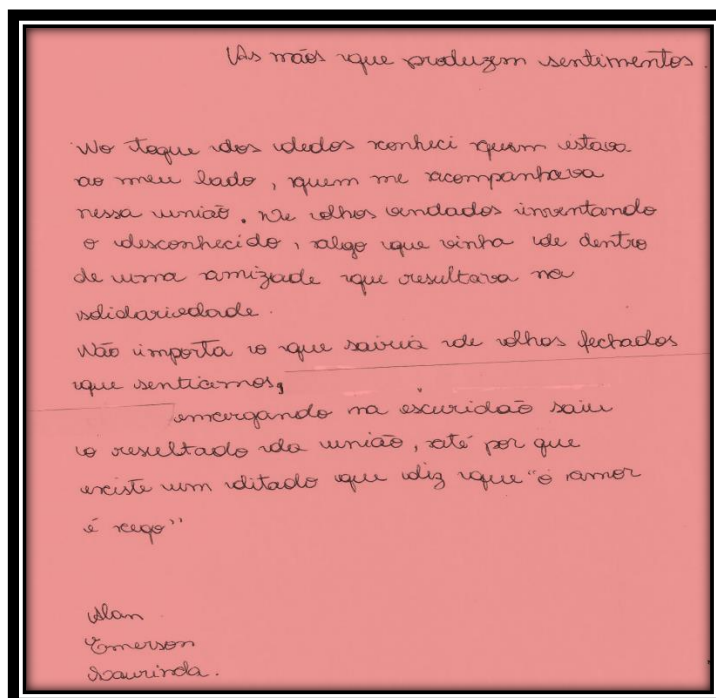 As mãos que produzem sentimentos.
No toque dos dedos conheci quem estava
ao meu lado, quem me acompanhava
nessa união. De olhos vendados inventando
o desconhecido, algo que vinha de dentro
de uma amizade que resultava na
solidariedade.
Não importa o que sairia de olhos fechados
que sentíamos,
enxergando na escuridão saiu
o resultado da união, até por que
existe um ditado que diz que "o amor
é cego"
Alan
Emerson
Laurinda.